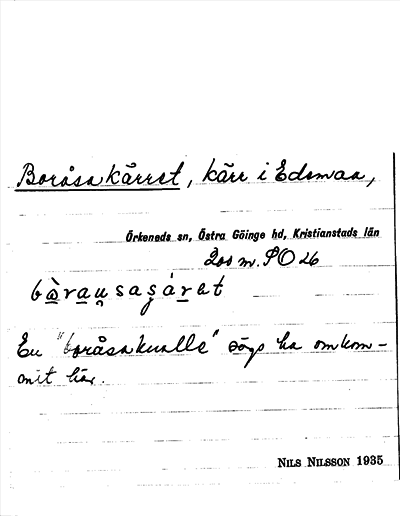 Boråsakärret, kärr i Edsmaa,
Örkeneds sn, Östra Göinge hd, Kristianstads län
200 m. SO 26
bàrau̯sasáret
En "boråsakualle" sägs ha omkom-
mit här.
NILS NILSSON 1935